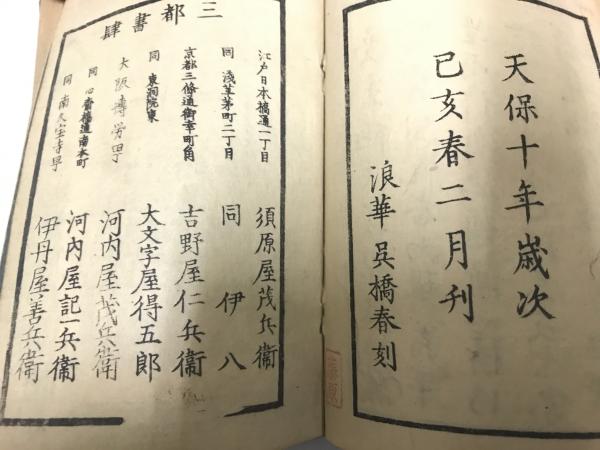 天保十年歳次
己亥春二月刊
浪華 呉橋春刻
三都書肆
江戸日本橋通一丁目 須原屋茂兵衞
同 淺草茅町二丁目 同 伊八
京都三條通御幸町角 吉野屋仁兵衞
同 東洞院東 大文字屋得五郎
大阪博勞町 河内屋茂兵衞
同 心齋橋通南本町 河内屋記一兵衞
同 南久宝寺町 伊丹屋善兵衞